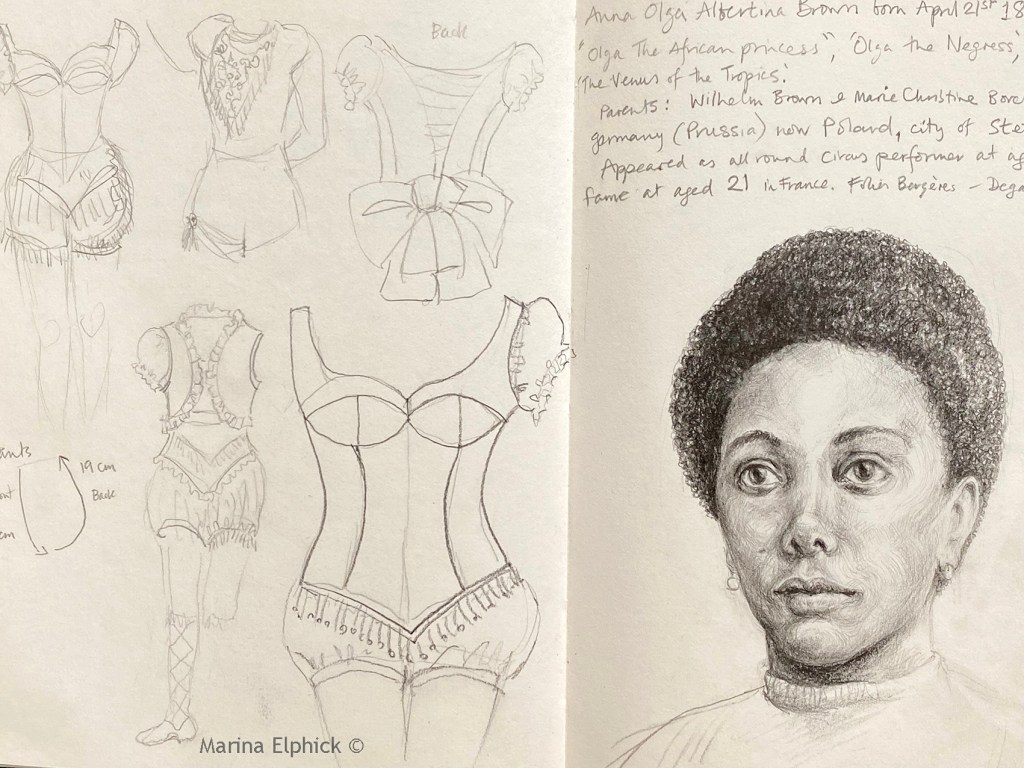 Back
Anna Olga Albertina Brown born April 21st 18
"Olga The African princess", 'Olga the Negress',
'The Venus of the Tropics'.
Parents: Wilhelm Brown & Marie Christine Borc
germany (Prussia) now Poland, city of Ste
Appeared as all round circus performer at ag
fame at aged 21 in France. Folies Bergères – Dega
19 cm
Back
Marina Elphick ©